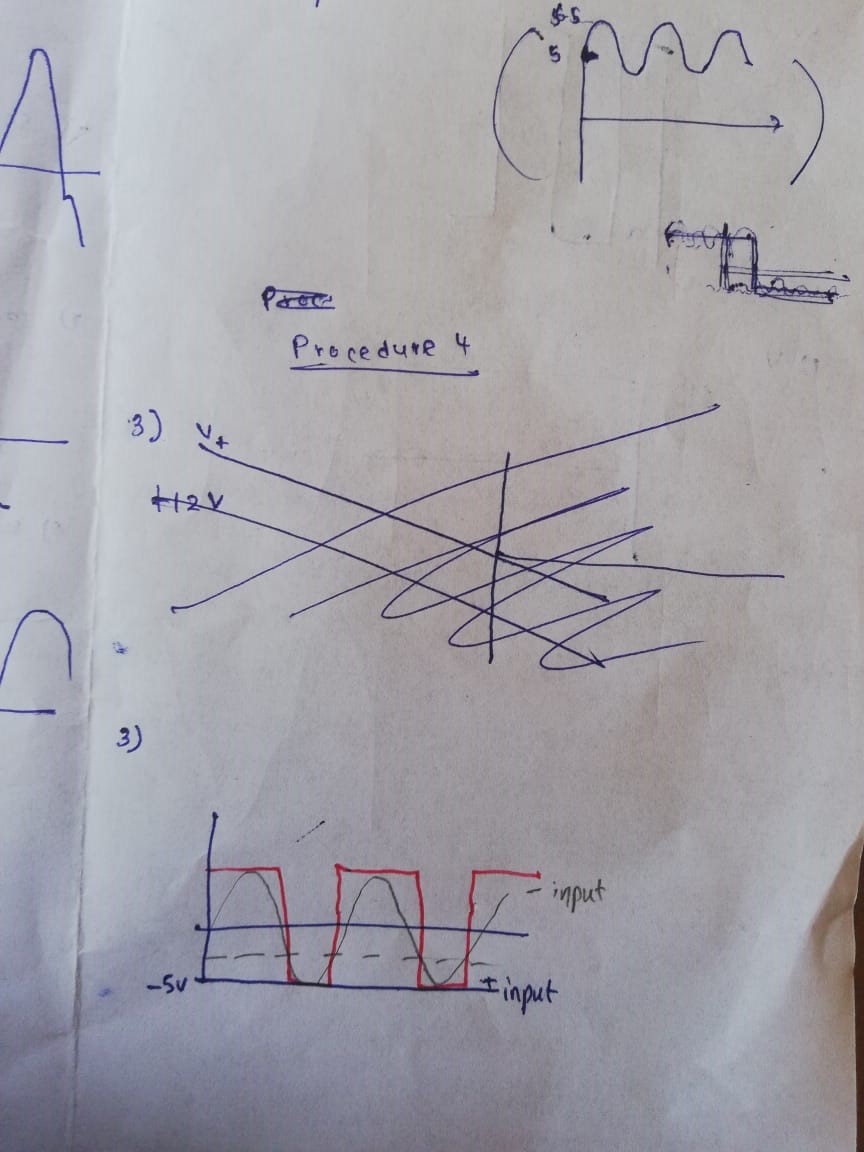 5
Procedure 4
3) V+
+12V
3)
- input
-5v
+ input